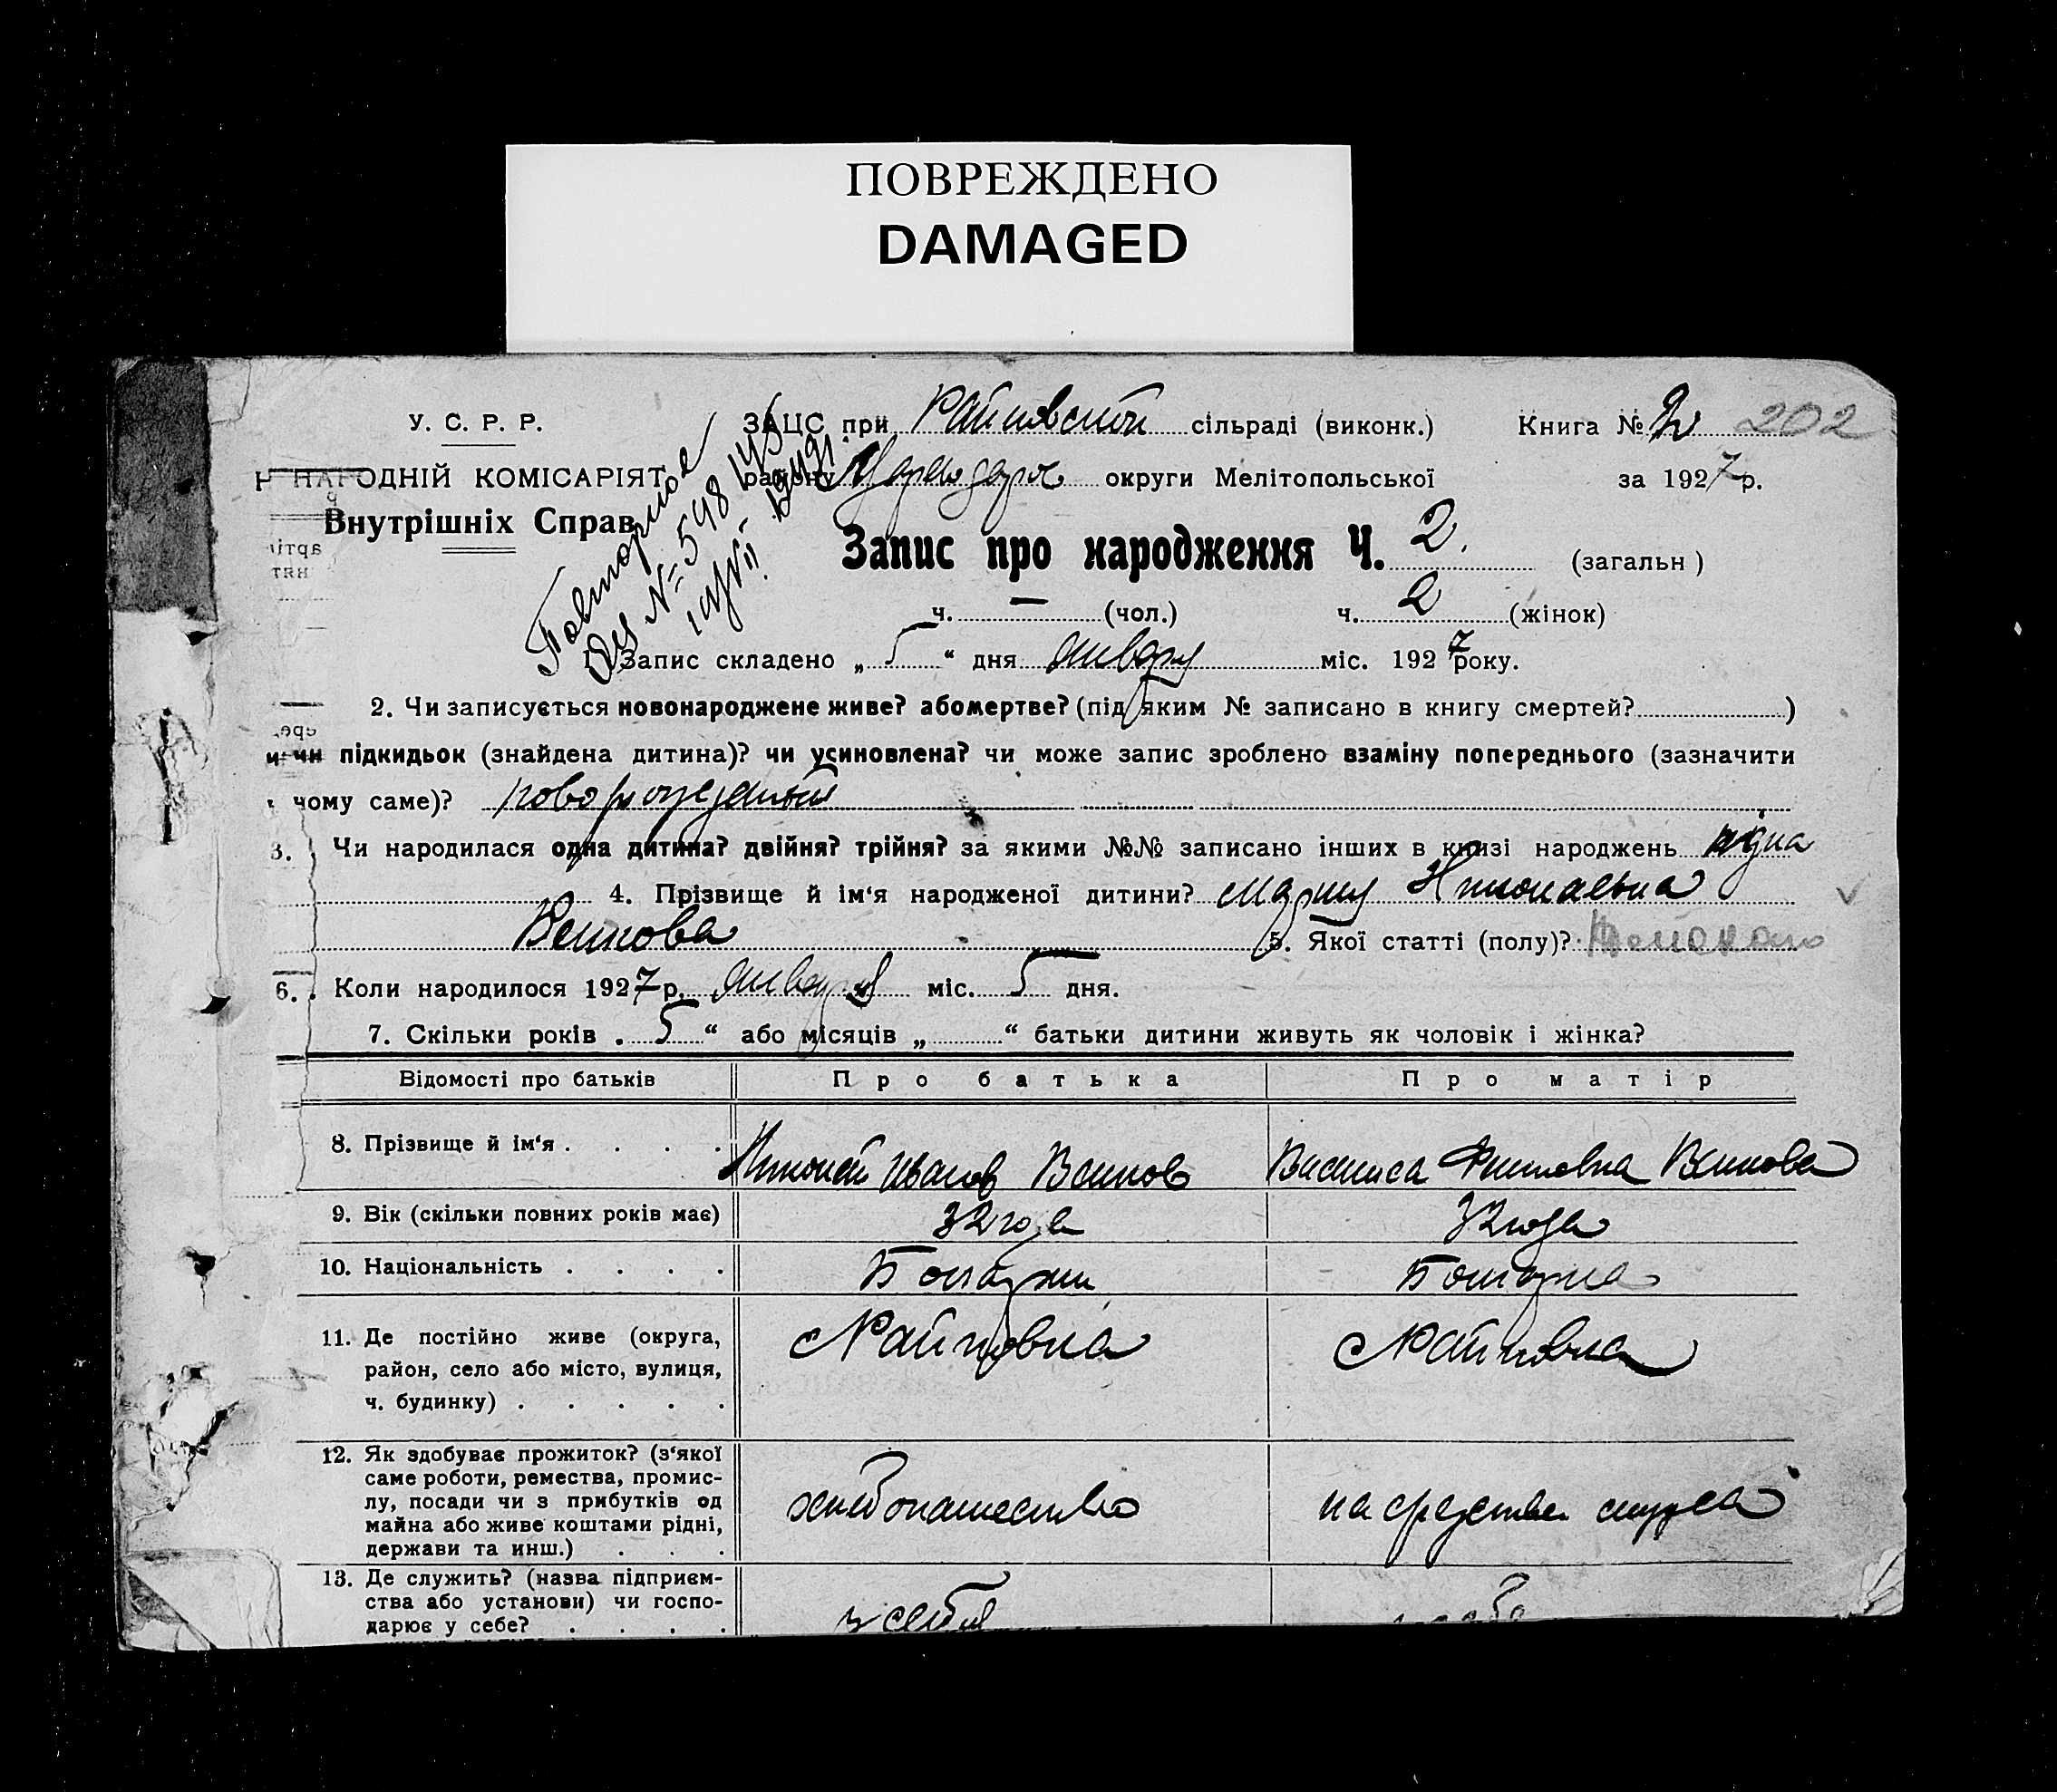 ПОВРЕЖДЕНО
DAMAGED
У. С. Р. Р.
ЗАЦС при Райновской сільраді (виконк.) Книга № 2 202
НАРОДНІЙ КОМІСАРІЯТ
району округи Мелітопольської за 1927 р.
Внутрішніх Справ
Повторное
№ 598
Запис про народження Ч. 2. (загальн)
ч. — (чол.) ч. 2 (жінок)
1. Запис складено „ 5 “ дня января міс. 1927 року.
2. Чи записується новонароджене живе? або мертве? (під яким № записано в книгу смертей? )
чи підкидьок (знайдена дитина)? чи усиновлена? чи може запис зроблено взаміну попереднього (зазначити
чому саме)? новорожденный
3. Чи народилася одна дитина? двійня? трійня? за якими №№ записано інших в книзі народжень одна
4. Прізвище й ім‘я народженої дитини? Мария Николаевна
5. Якої статті (полу)?
6. Коли народилося 1927 р. января міс. 5 дня.
7. Скільки років „ 5 “ або місяців „ “ батьки дитини живуть як чоловік і жінка?
Відомості про батьків Про батька Про матір
8. Прізвище й ім‘я . . . . Николай Иванов Василиса
9. Вік (скільки повних років має) 32 года 32 года
10. Національність . . . . Болгарин Болгарка
11. Де постійно живе (округа,
район, село або місто, вулиця,
ч. будинку) . . . . .
Райновка Райновка
12. Як здобуває прожиток? (з‘якої
саме роботи, ремества, промис-
лу, посади чи з прибутків од
майна або живе коштами рідні,
держави та инш.) . . .
хлебопашество на средства мужа
13. Де служить? (назва підприєм-
ства або установи) чи госпо-
дарює у себе? . . . .
у себя